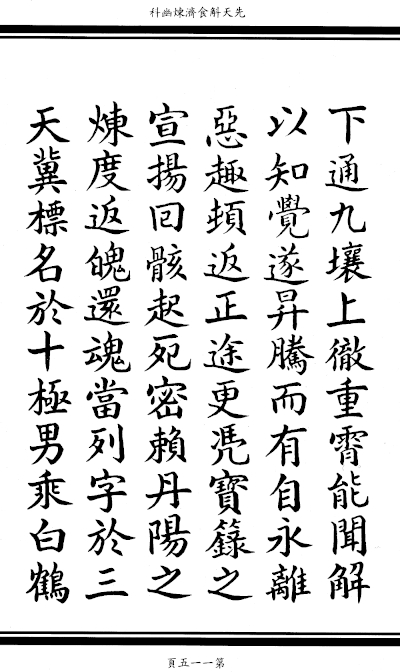 先天斛食濟煉幽科
下通九壤上徹重霄能聞解
以知覺遂昇騰而有自永離
惡趣頓返正途更凴寶籙之
宣揚回骸起死密賴丹陽之
煉度返魄還魂當列字於三
天冀標名於十極男乘白鶴
第一一五頁